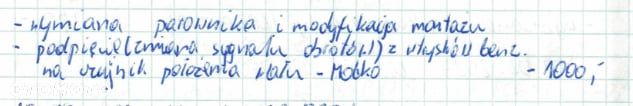 - wymiana parownika i modyfikacja montażu
- podpięcie (zmiana sygnału obrotów!) z wtrysków benz.
na czujnik położenia wału - Mobko - 1000,-